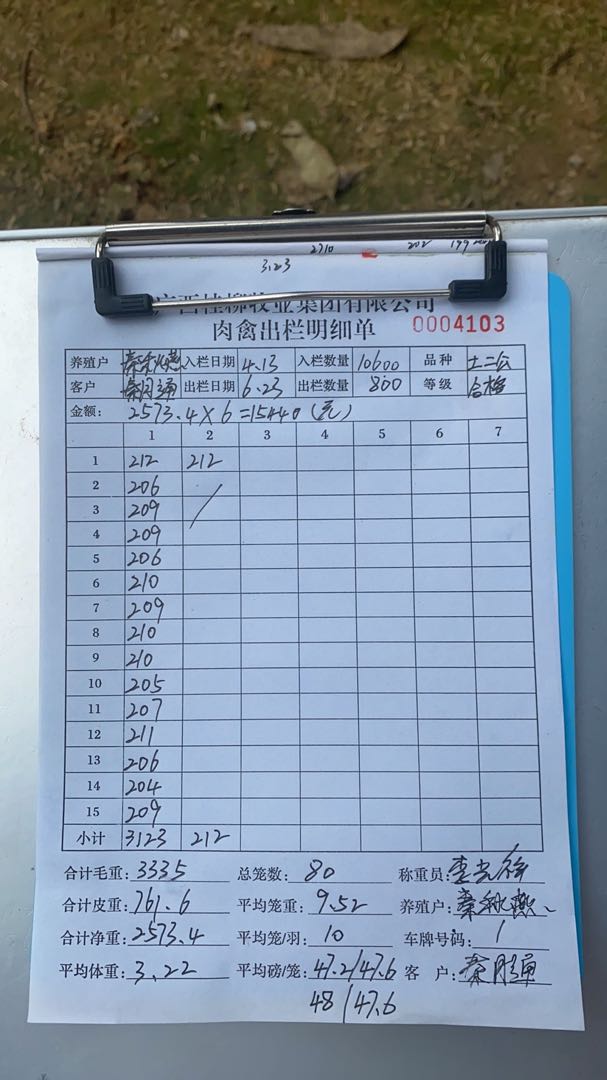 3123 2710 202 199
广西桂柳牧业集团有限公司
肉禽出栏明细单 0004103
养殖户 秦秋燕 入栏日期 4.13 入栏数量 10600 品种 土二公
客户 出栏日期 6.23 出栏数量 800 等级 合格
金额: 2573.4×6=15440(元)
1 2 3 4 5 6 7
1 212 212
2 206
3 209
4 209
5 206
6 210
7 209
8 210
9 210
10 205
11 207
12 211
13 206
14 204
15 209
小计 3123 212
合计毛重: 3335 总笼数: 80 称重员:
合计皮重: 761.6 平均笼重: 9.52 养殖户: 秦秋燕
合计净重: 2573.4 平均笼/羽: 10 车牌号码: 1
平均体重: 3.22 平均磅/笼: 47.2/47.6 客 户:
48/47.6